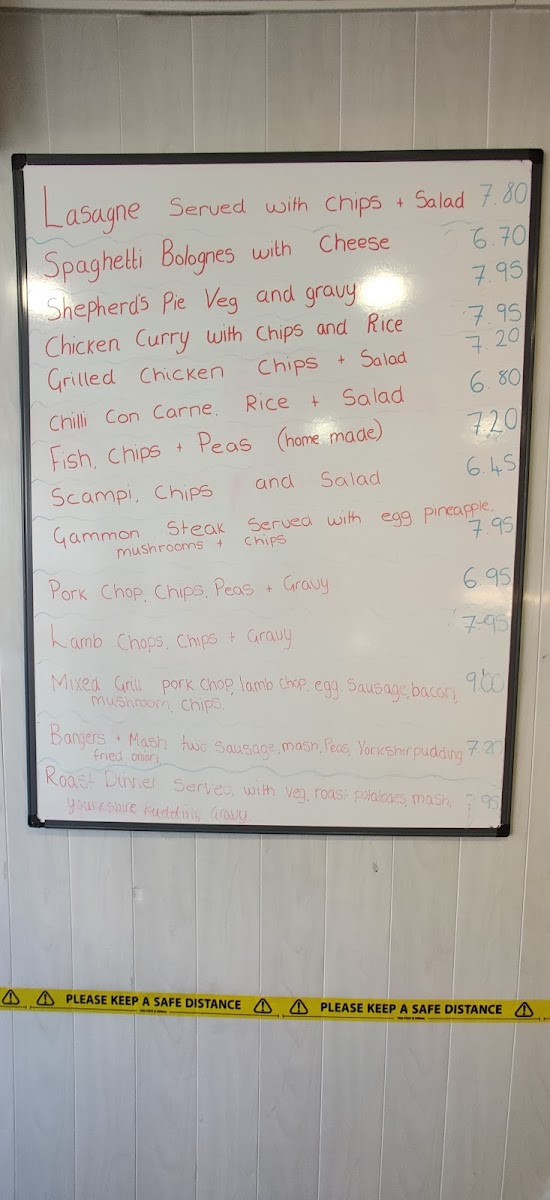 Lasagne Served with chips + Salad 7.80
Spaghetti Bolognes with Cheese 6.70
Shepherd's Pie Veg and gravy 7.95
Chicken Curry with Chips and Rice 7.95
Grilled Chicken Chips + Salad 7.20
Chilli Con Carne. Rice + Salad 6.80
Fish, Chips + Peas (home made) 7.20
Scampi, Chips and Salad 6.45
Gammon Steak Served with egg pineapple,
mushrooms + chips 7.95
Pork Chop, Chips, Peas + Gravy 6.95
Lamb Chops, Chips + Gravy 7.95
Mixed Grill pork chop, lamb chop, egg, Sausage, bacon, 9.00
mushroom, chips.
Bangers + Mash two sausage, mash, Peas, Yorkshirpudding 7.20
fried onion,
Roast Dinner Served with veg, roast potatoes, mash,
yourkshire Pudding Gravy
PLEASE KEEP A SAFE DISTANCE PLEASE KEEP A SAFE DISTANCE